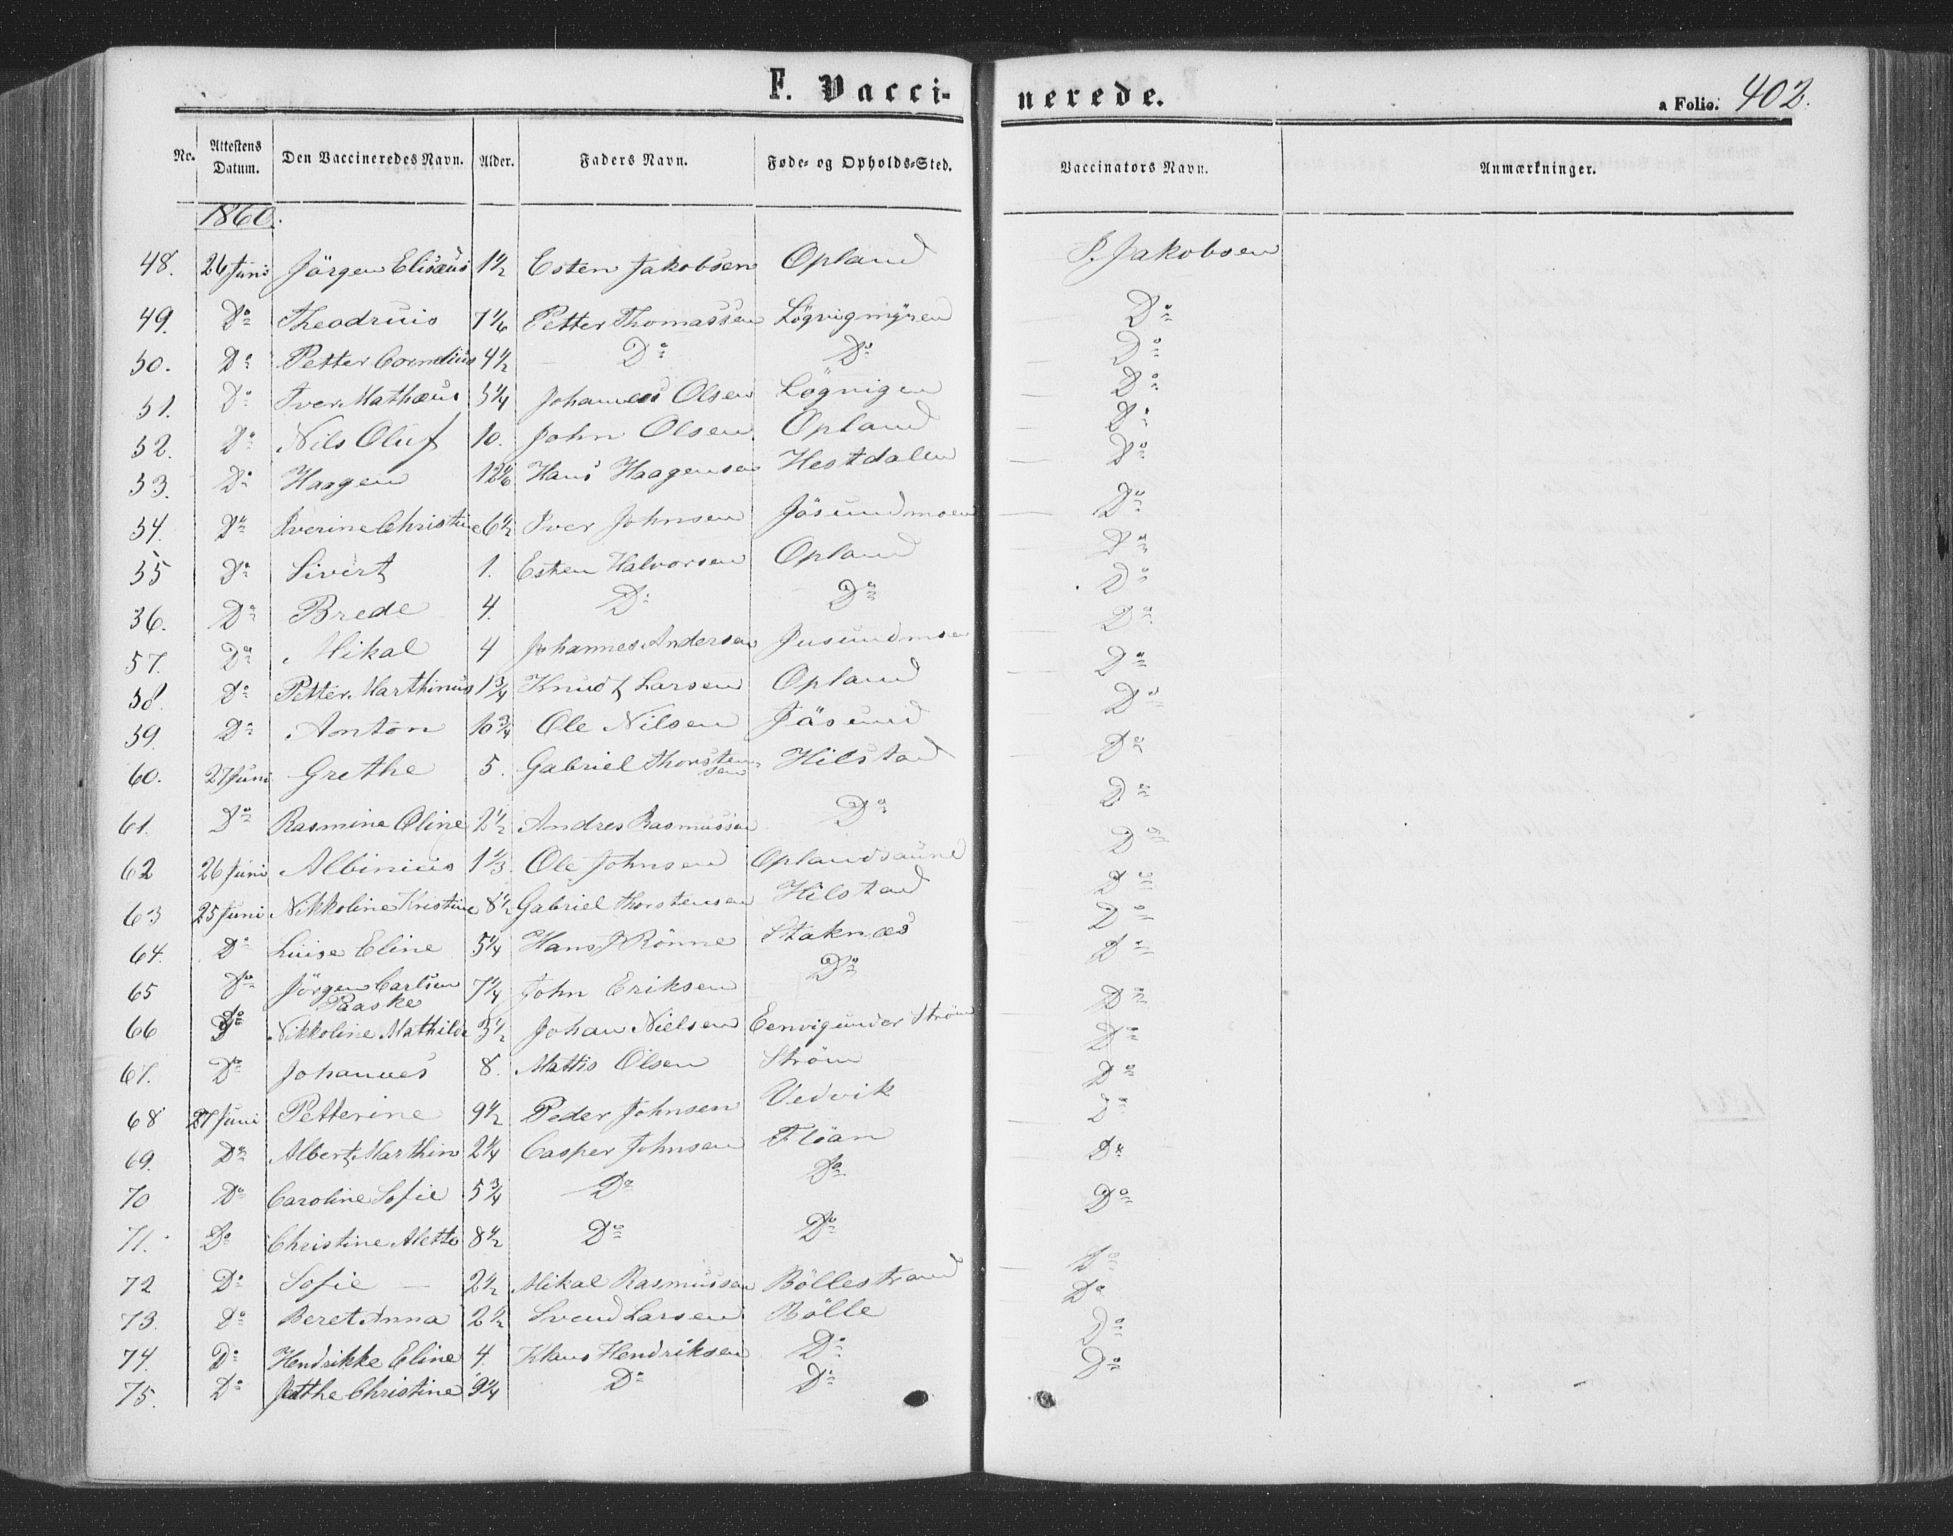 F. Vaccinerede. a Folio. 402.
No. Attestens Datum. Den Vaccineredes Navn. Alder. Faders Navn. Føde- og Opholds-Sted. Vaccinators Navn. Anmærkninger.
1860.
48. 26 Juni Jörgen Elisæus 1 1/2 Esten Jakobsen Opland Jakobsen
49. Do Theodruis 7 1/6 Petter Thomassen Lögvigmÿren Do
50. Do Petter Cornelius 4 1/2 Do Do Do
51. Do Iver Mathæus 5 1/4 Johannes Olsen Lögvigen Do
52. Do Nils Oluf 10. John Olsen Opland Do
53. Do Haagen 12 1/6 Hans Haagensen Hestdalen Do
54. Do Iverine Christine 6 1/2 Iver Johnsen Jösundmoen Do
55 Do Sivert 1. Esten Halvorsen Opland Do
56. Do Brede 4. Do Do Do
57. Do Mikal 4 Johannes Andersen Jusundmoen Do
58. Do Petter Marthinus 1 3/4 Knudt Larsen Opland Do
59. Do Anton 10 3/4 Ole Nilsen Jösund Do
60. 27 Juni Grethe 5. Gabriel Thorstensen Hilstad Do
61. Do Rasmine Oline 2 1/2 Andres Rasmussen Do Do
62 26 Juni Albinius 1 1/3 Ole Johnsen Oplandsaune Do
63 25 Juni Nikkoline Kristine 8 1/2 Gabriel Thorstensen Hilstad Do
64. Do Luise Eline 5 1/4 Hans J Rönne Staknæs Do
65 Do Jörgen Carlsen Paaske 7 1/4 John Eriksen Do Do
66 Do Nikkoline Mathilde 3 1/2 Johan Nielsen Eenvig under Ström Do
67. Do Johannes 8. Mattis Olsen Ström Do
68 27 Juni Petterine 9 1/2 Peder Johnsen Vedvik Do
69. Do Albert Marthin 2 1/4 Casper Johnsen Flöan Do
70 Do Caroline Sofie 5 3/4 Do Do Do
71. Do Christine Alette 8 1/2 Do Do Do
72 Do Sofie 2 1/2 Mikal Rasmussen Böllestrand Do
73. Do Beret Anna 2 1/2 Svend Larsen Bölle Do
74. Do Hendrikke Eline 4. Klaus Hendriksen Do Do
75. Do Jethe Christine 9 1/4 Do Do